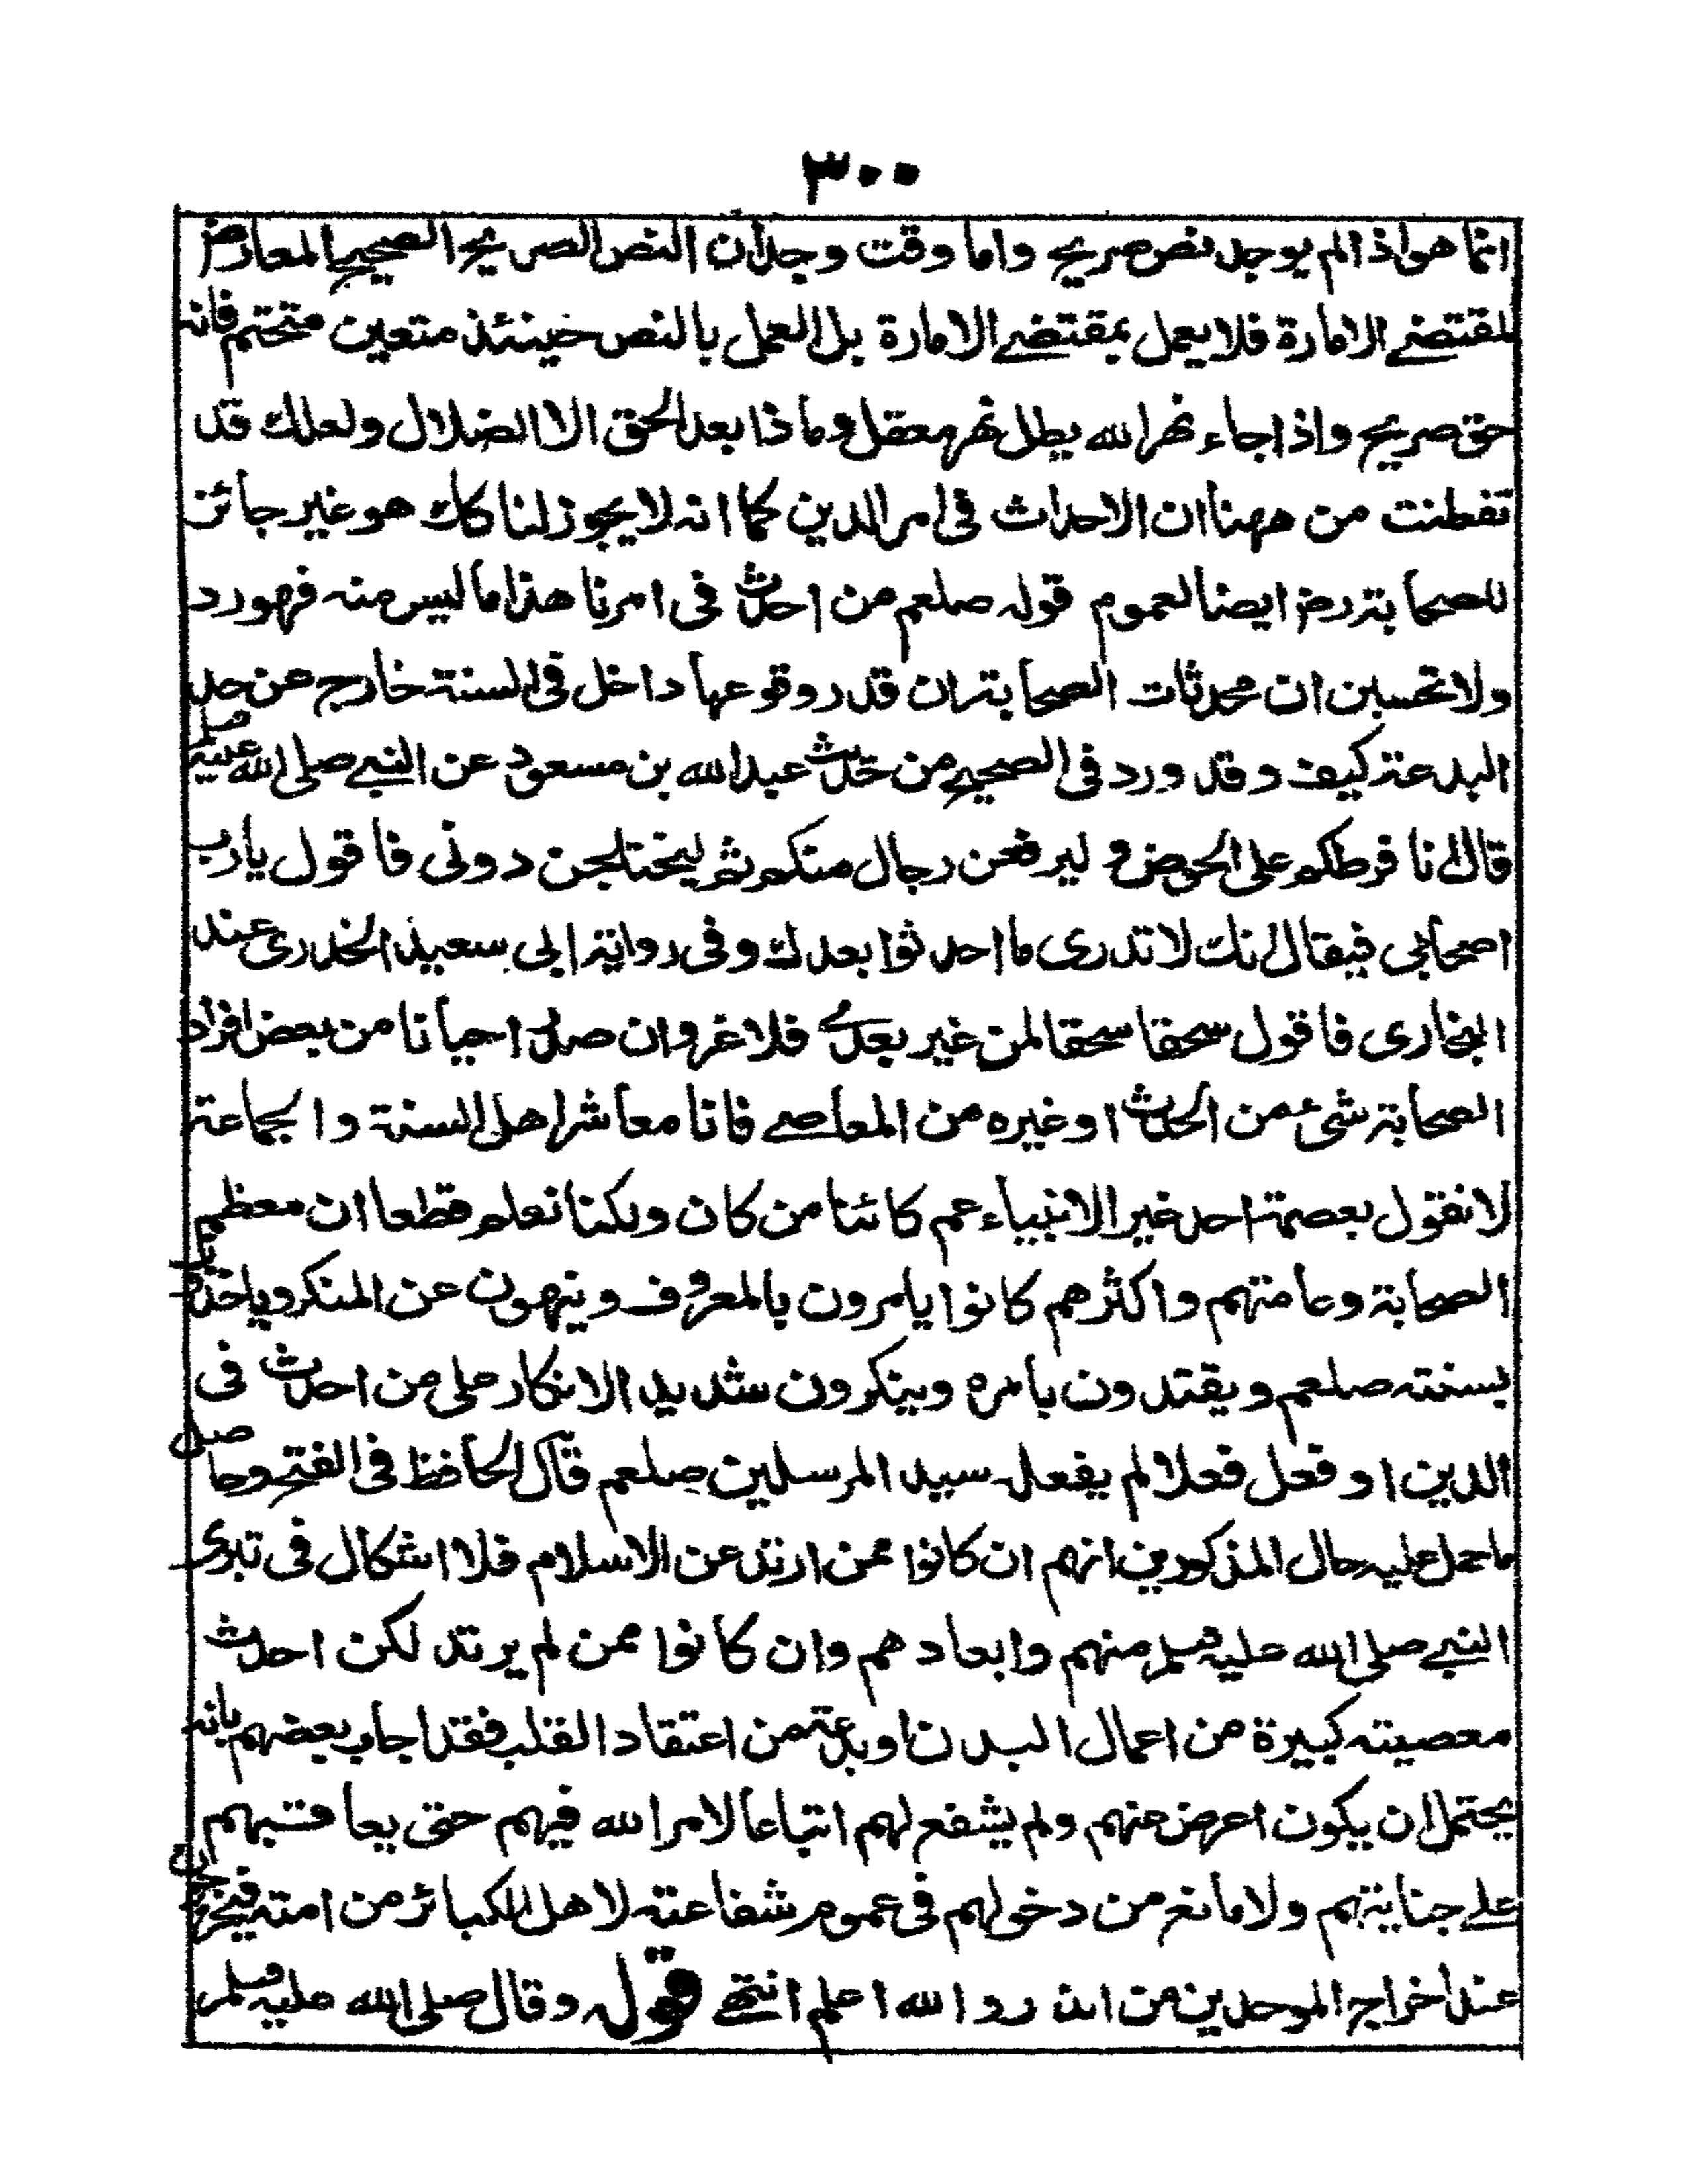 ٣٠٠
انما هو اذا لم يوجد نص صريح واما وقت وجدان النص الصريح الصحيح المعارض
لمقتضى الامارة فلا يعمل بمقتضى الامارة بل العمل بالنص حينئذ متعين متحتم فانه
حق صريح واذا جاء نهر الله يطل نهر معقل وماذا بعد الحق الا الضلال ولعلك قد
تفطنت من ههنا ان الاحداث فى امر الدين كما انه لا يجوز لنا كك هو غير جائز
للصحابة رض ايضا لعموم قوله صلعم من احدث فى امرنا هذا ما ليس منه فهو رد
ولا تحسبن ان محدثات الصحابة ان قدر وقوعها داخل فى السنة خارج عن حد
البدعة كيف وقد ورد فى الصحيح من حديث عبد الله بن مسعود عن النبي صلى الله عليه وسلم
قال انا فرطكم على الحوض و ليرفعن رجال منكم ثم ليختلجن دونى فاقول يا رب
اصحابى فيقال انك لا تدرى ما احدثوا بعدك وفى رواية ابى سعيد الخدرى عند
البخارى فاقول سحقا سحقا لمن غير بعدي فلا غرو ان صدر احيانا من بعض افراد
الصحابة شئ من الحدث او غيره من المعاصي فانا معاشر اهل السنة والجماعة
لا نقول بعصمة احد غير الانبياء عم كائنا من كان ولكنا نعلم قطعا ان معظم
الصحابة وعامتهم واكثرهم كانوا يامرون بالمعروف وينهون عن المنكر وياخذون
بسنته صلعم ويقتدون بامره وينكرون شديد الانكار على من احدث فى
الدين او فعل فعلا لم يفعله سيد المرسلين صلعم قال الحافظ فى الفتح وحاصل
ما حمل عليه حال المذكورين انهم ان كانوا ممن ارتد عن الاسلام فلا اشكال فى تبرى
النبي صلى الله عليه وسلم منهم وابعادهم وان كانوا ممن لم يرتد لكن احدث
معصيته كبيرة من اعمال البدن او بدعة من اعتقاد القلب فقد اجاب بعضهم بانه
يحتمل ان يكون اعرض عنهم ولم يشفع لهم اتباعا لامر الله فيهم حتى يعاقبهم
على جنايتهم ولا مانع من دخولهم فى عموم شفاعته لاهل الكبائر من امته فيخرجون
عند اخراج الموحدين من النار والله اعلم انتهى قوله وقال صلى الله عليه وسلم